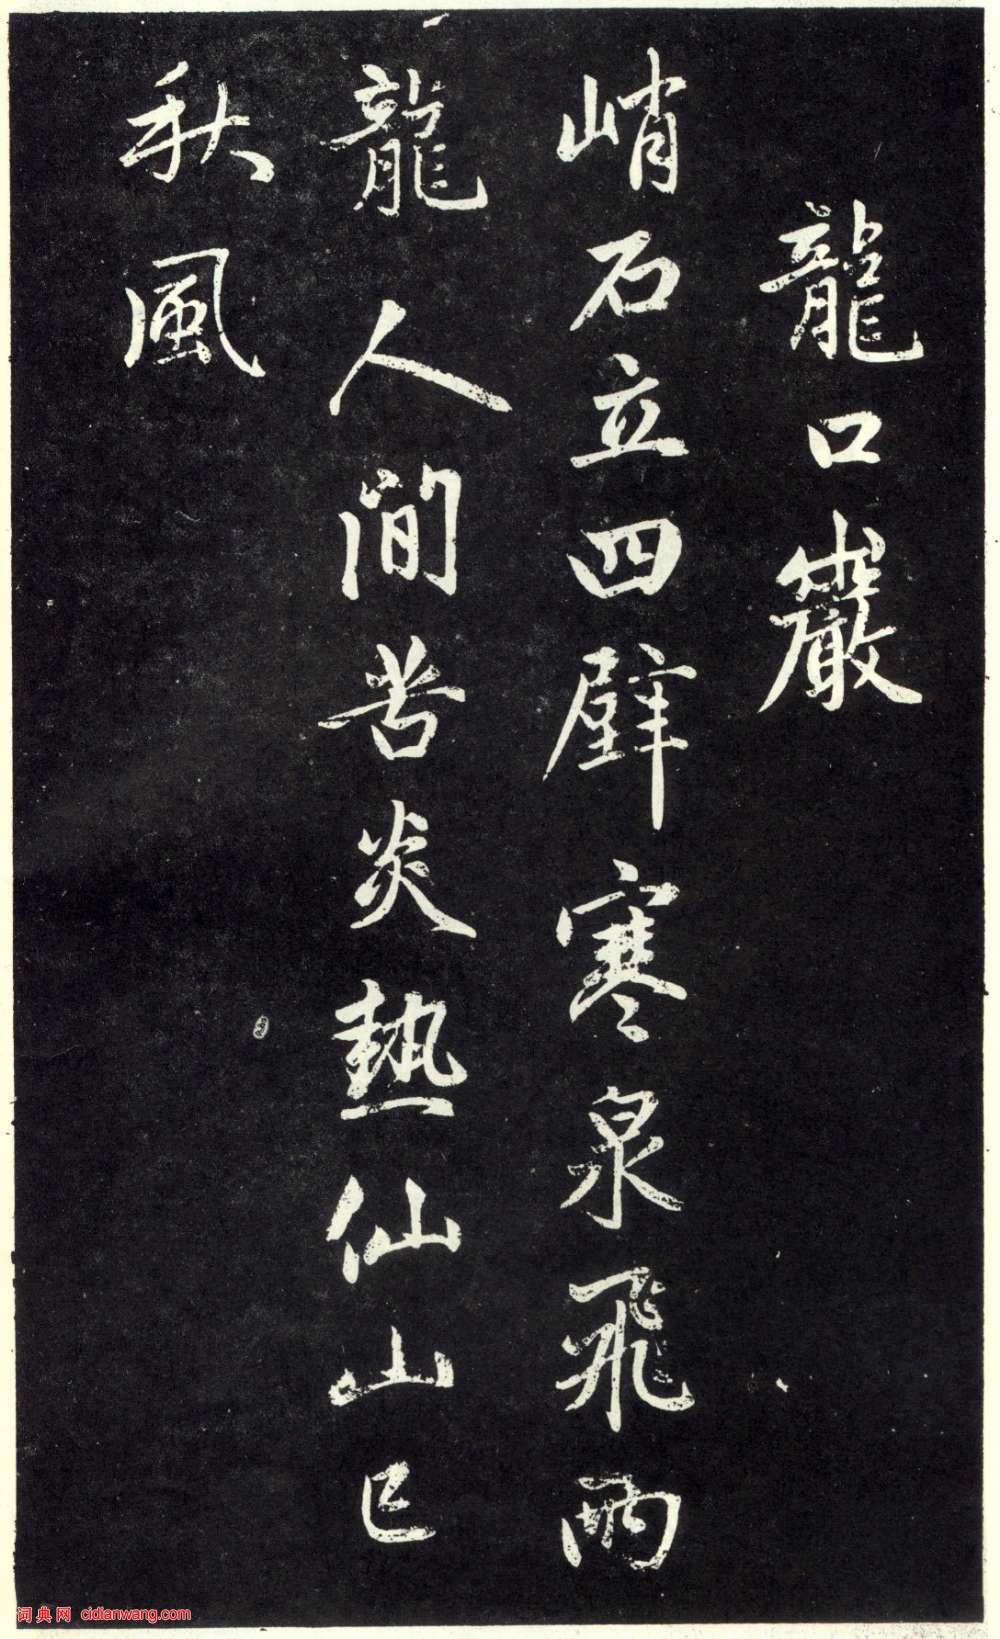 龍口巖
峭石立四壁寒泉飛兩
龍人間苦炎熱仙山已
秋風
词典网 cidianwang.com